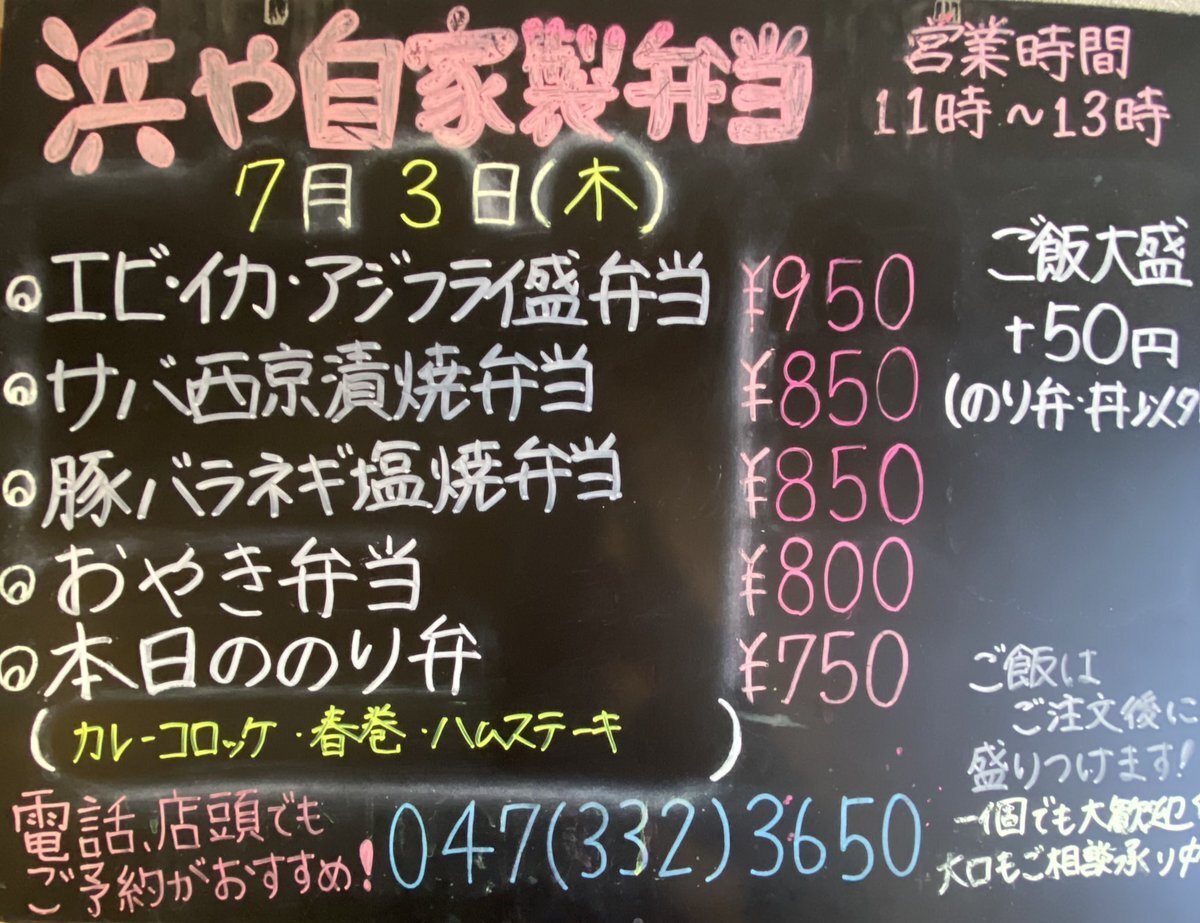 浜や自家製弁当
営業時間
11時～13時
7月3日(木)
エビ・イカ・アジフライ盛弁当 ¥950
サバ西京漬焼弁当 ¥850
豚バラネギ塩焼弁当 ¥850
おやき弁当 ¥800
本日ののり弁 ¥750
(カレーコロッケ・春巻・ハムステーキ)
ご飯大盛
+50円
(のり弁・丼以外
ご飯は
ご注文後に
盛りつけます!
一個でも大歓迎
大口もご相談承り中
電話、店頭でも
ご予約がおすすめ!
047(332)3650